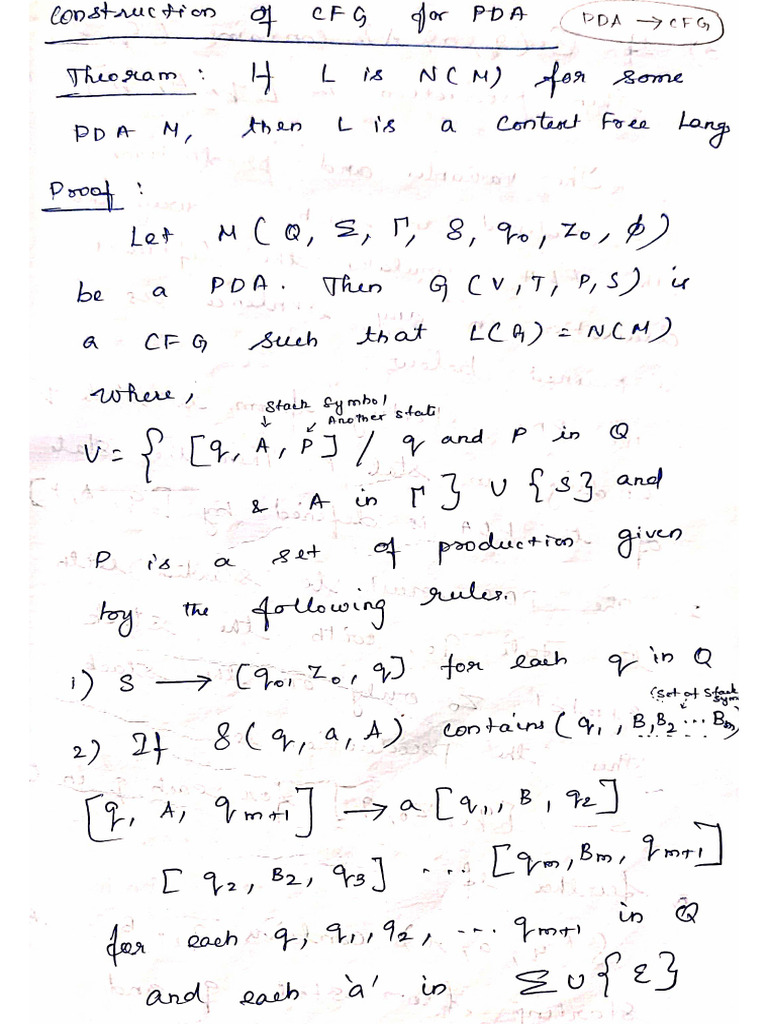 Construction of CFG for PDA (PDA → CFG)
Theoram : If L is N(M) for some
PDA M, then L is a Context Free Lang
Proof :
Let M(Q, Σ, Γ, δ, q₀, Z₀, ϕ)
be a PDA. Then G(V,T,P,S) is
a CFG such that L(G) = N(M)
where,
Stack Symbol
↓ ↙ Another State
V = { [q, A, P] / q and P in Q
& A in Γ } ∪ {S} and
P is a set of production given
by the following rules.
1) S → [q₀, Z₀, q] for each q in Q
(Set of Stack Sym
2) If δ(q, a, A) contains (q₁, B₁B₂ ... Bₘ)
[q, A, qₘ₊₁] → a [q₁, B, q₂]
[q₂, B₂, q₃] ... [qₘ, Bₘ, qₘ₊₁]
for each q, q₁, q₂, ... qₘ₊₁ in Q
and each 'a' in Σ ∪ {ε}